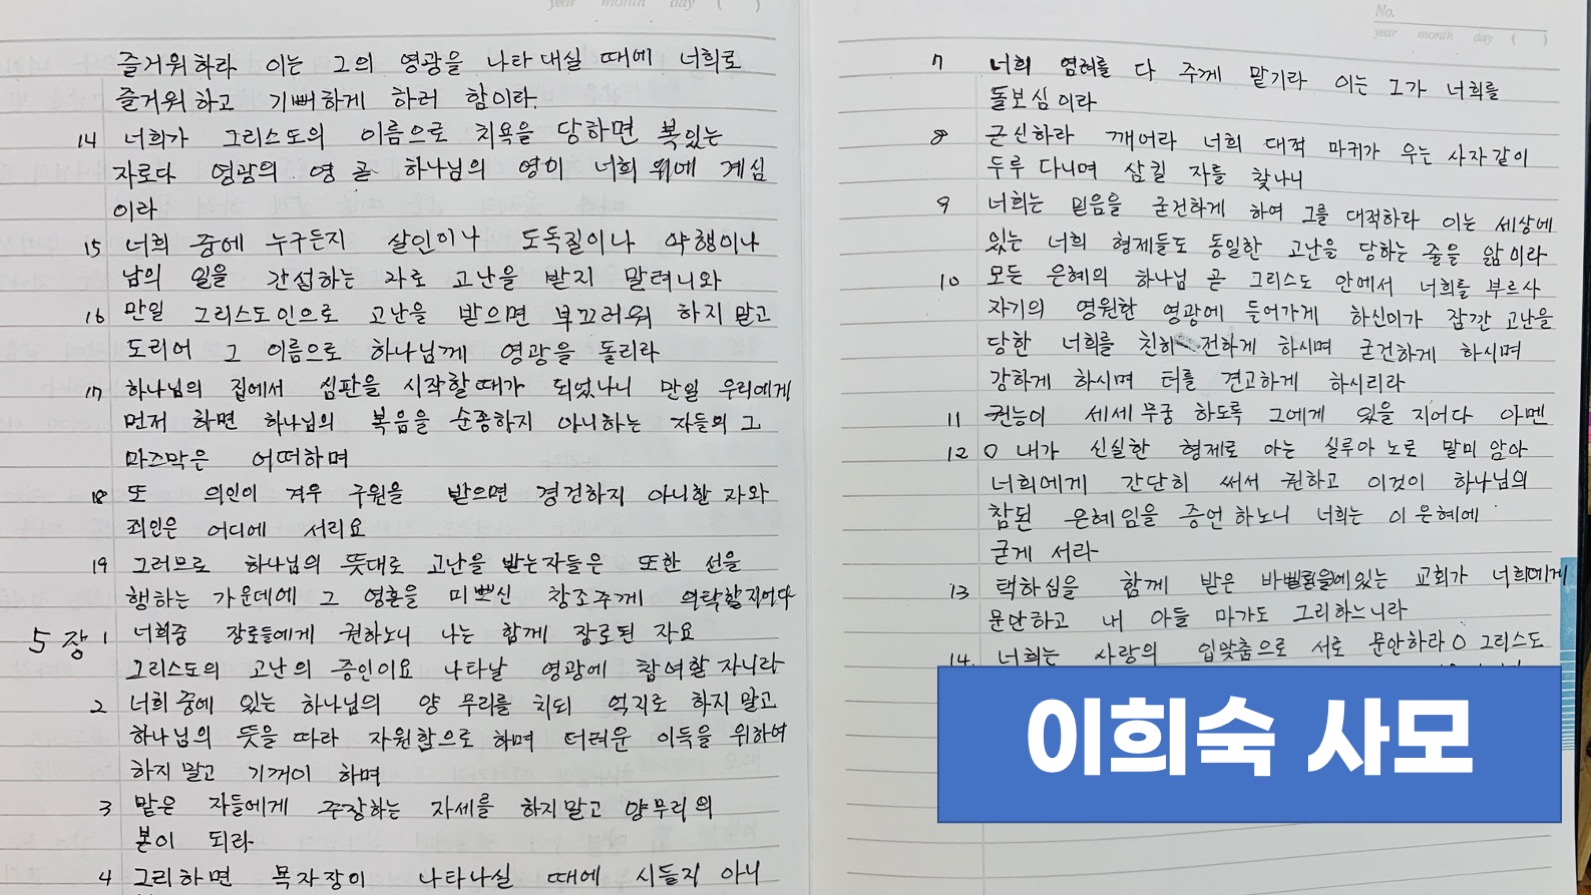 year month day ( )
즐거워하라 이는 그의 영광을 나타내실 때에 너희로
즐거워하고 기뻐하게 하려 함이라.
14 너희가 그리스도의 이름으로 치욕을 당하면 복있는
자로다 영광의 영 곧 하나님의 영이 너희 위에 계심
이라
15 너희 중에 누구든지 살인이나 도둑질이나 악행이나
남의 일을 간섭하는 자로 고난을 받지 말려니와
16 만일 그리스도인으로 고난을 받으면 부끄러워 하지 말고
도리어 그 이름으로 하나님께 영광을 돌리라
17 하나님의 집에서 심판을 시작할 때가 되었나니 만일 우리에게
먼저 하면 하나님의 복음을 순종하지 아니하는 자들의 그
마즈막은 어떠하며
18 또 의인이 겨우 구원을 받으면 경건하지 아니한 자와
죄인은 어디에 서리요
19 그러므로 하나님의 뜻대로 고난을 받는자들은 또한 선을
행하는 가운데에 그 영혼을 미쁘신 창조주께 의탁할지어다
5장 1 너희중 장로들에게 권하노니 나는 함께 장로된 자요
그리스도의 고난의 증인이요 나타날 영광에 참여할 자니라
2 너희 중에 있는 하나님의 양 무리를 치되 억지로 하지 말고
하나님의 뜻을 따라 자원함으로 하며 더러운 이득을 위하여
하지 말고 기꺼이 하며
3 맡은 자들에게 주장하는 자세를 하지말고 양무리의
본이 되라
4 그리하면 목자장이 나타나실 때에 시들지 아니
No.
year month day ( )
7 너희 염려를 다 주께 맡기라 이는 그가 너희를
돌보심이라
8 근신하라 깨어라 너희 대적 마귀가 우는 사자같이
두루 다니며 삼킬 자를 찾나니
9 너희는 믿음을 굳건하게 하여 그를 대적하라 이는 세상에
있는 너희 형제들도 동일한 고난을 당하는 줄을 앎이라
10 모든 은혜의 하나님 곧 그리스도 안에서 너희를 부르사
자기의 영원한 영광에 들어가게 하신이가 잠깐 고난을
당한 너희를 친히 전하게 하시며 굳건하게 하시며
강하게 하시며 터를 견고하게 하시리라
11 권능이 세세무궁 하도록 그에게 있을 지어다 아멘
12 O 내가 신실한 형제로 아는 실루아노로 말미암아
너희에게 간단히 써서 권하고 이것이 하나님의
참된 은혜임을 증언하노니 너희는 이 은혜에
굳게 서라
13 택하심을 함께 받은 교회가 너희에게
문안하고 내 아들 마가도 그리하느니라
14. 너희는 사랑의 입맞춤으로 서로 문안하라 O 그리스도
이희숙 사모